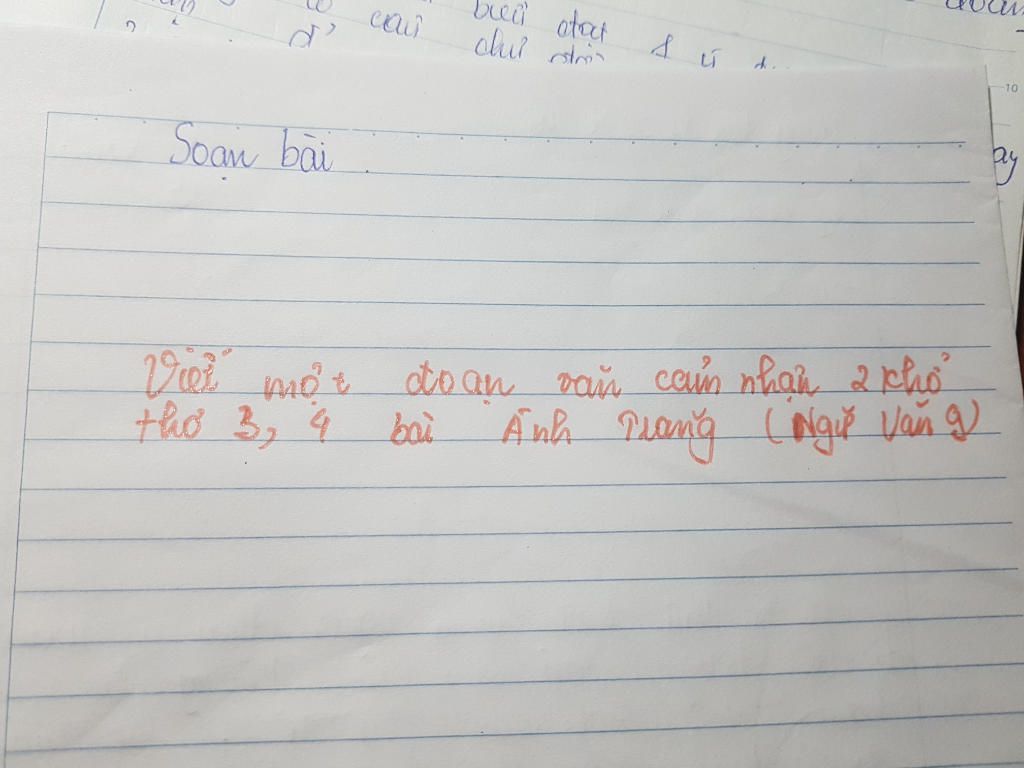 buổi đạt
câu chủ
10
ay
Soạn bài
Viết một đoạn văn cảm nhận 2 khổ
thơ 3, 4 bài Ánh Trăng (Ngữ Văn 9)